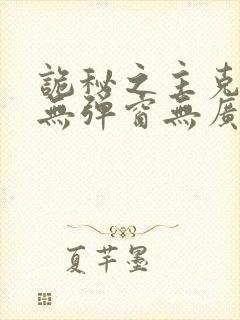 詭秘之主克
無彈窗無廣
夏芊墨